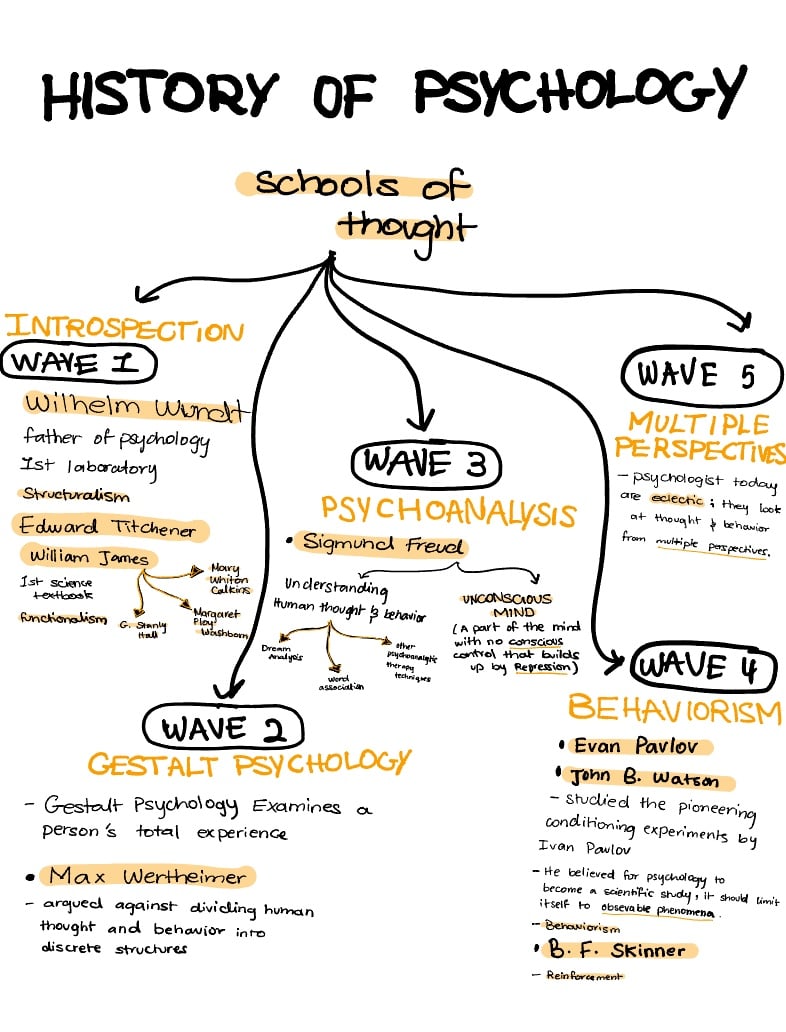 HISTORY OF PSYCHOLOGY
Schools of
thought
INTROSPECTION
WAVE 1
Wilhelm Wundt
father of psychology
1st laboratory
Structuralism
Edward Titchener
William James
1st science
textbook
functionalism
Mary
Whiton
Calkins
G. Stanly
Hall
Margaret
Floy
Washborn
WAVE 2
GESTALT PSYCHOLOGY
- Gestalt Psychology Examines a
person's total experience
• Max Wertheimer
- argued against dividing human
thought and behavior into
discrete structures
WAVE 3
PSYCHOANALYSIS
• Sigmund Freud
Understanding
Human thought & behavior
Dream
Analysis
word
association
other
psychoanalytic
therapy
techniques
UNCONSCIOUS
MIND
(A part of the mind
with no conscious
control that builds
up by Repression)
WAVE 4
BEHAVIORISM
• Evan Pavlov
• John B. Watson
- studied the pioneering
conditioning experiments by
Ivan Pavlov
- He believed for psychology to
become a scientific study, it should limit
itself to obsevable phenomena.
- Behaviorism
• B. F. Skinner
- Reinforcement
WAVE 5
MULTIPLE
PERSPECTIVES
- psychologist today
are eclectic; they look
at thought & behavior
from multiple perspectives.